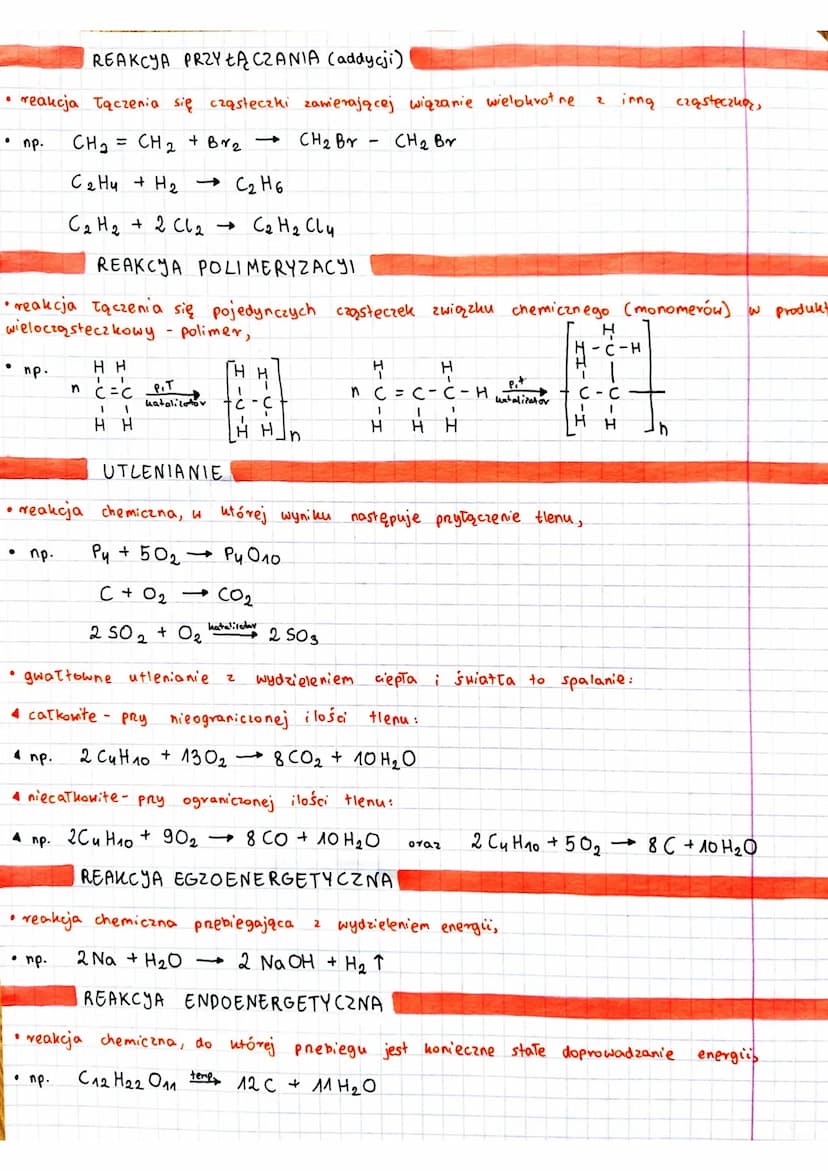 REAKCJA PRZYŁĄCZANIA (addycji)
• reakcja łączenia się cząsteczki zawierającej wiązanie wielokrotne z inną cząsteczką,
• np. CH2 = CH2 + Br2 → CH2Br - CH2Br
C2H4 + H2 → C2H6
C2H2 + 2 Cl2 → C2H2Cl4
REAKCJA POLIMERYZACJI
• reakcja łączenia się pojedynczych cząsteczek związku chemicznego (monomerów) w produkt
wielocząsteczkowy - polimer,
H
H H H H H H H - C - H
• np. n C = C p,T katalizator [ - C - C - ] n n C = C - C - H p,t katalizator [ - C - C - ] n
H H H H H H H H H
UTLENIANIE
• reakcja chemiczna, w której wyniku następuje przyłączenie tlenu,
• np. P4 + 5O2 → P4O10
C + O2 → CO2
2 SO2 + O2 katalizator → 2 SO3
• gwałtowne utlenianie z wydzieleniem ciepła i światła to spalanie:
◂ całkowite - przy nieograniczonej ilości tlenu:
◂ np. 2 C4H10 + 13O2 → 8 CO2 + 10 H2O
◂ niecałkowite - przy ograniczonej ilości tlenu:
◂ np. 2C4H10 + 9O2 → 8 CO + 10 H2O oraz 2 C4H10 + 5O2 → 8 C + 10 H2O
REAKCJA EGZOENERGETYCZNA
• reakcja chemiczna przebiegająca z wydzieleniem energii,
• np. 2 Na + H2O → 2 NaOH + H2 ↑
REAKCJA ENDOENERGETYCZNA
• reakcja chemiczna, do której przebiegu jest konieczne stałe doprowadzanie energii,
• np. C12H22O11 temp. → 12 C + 11 H2O